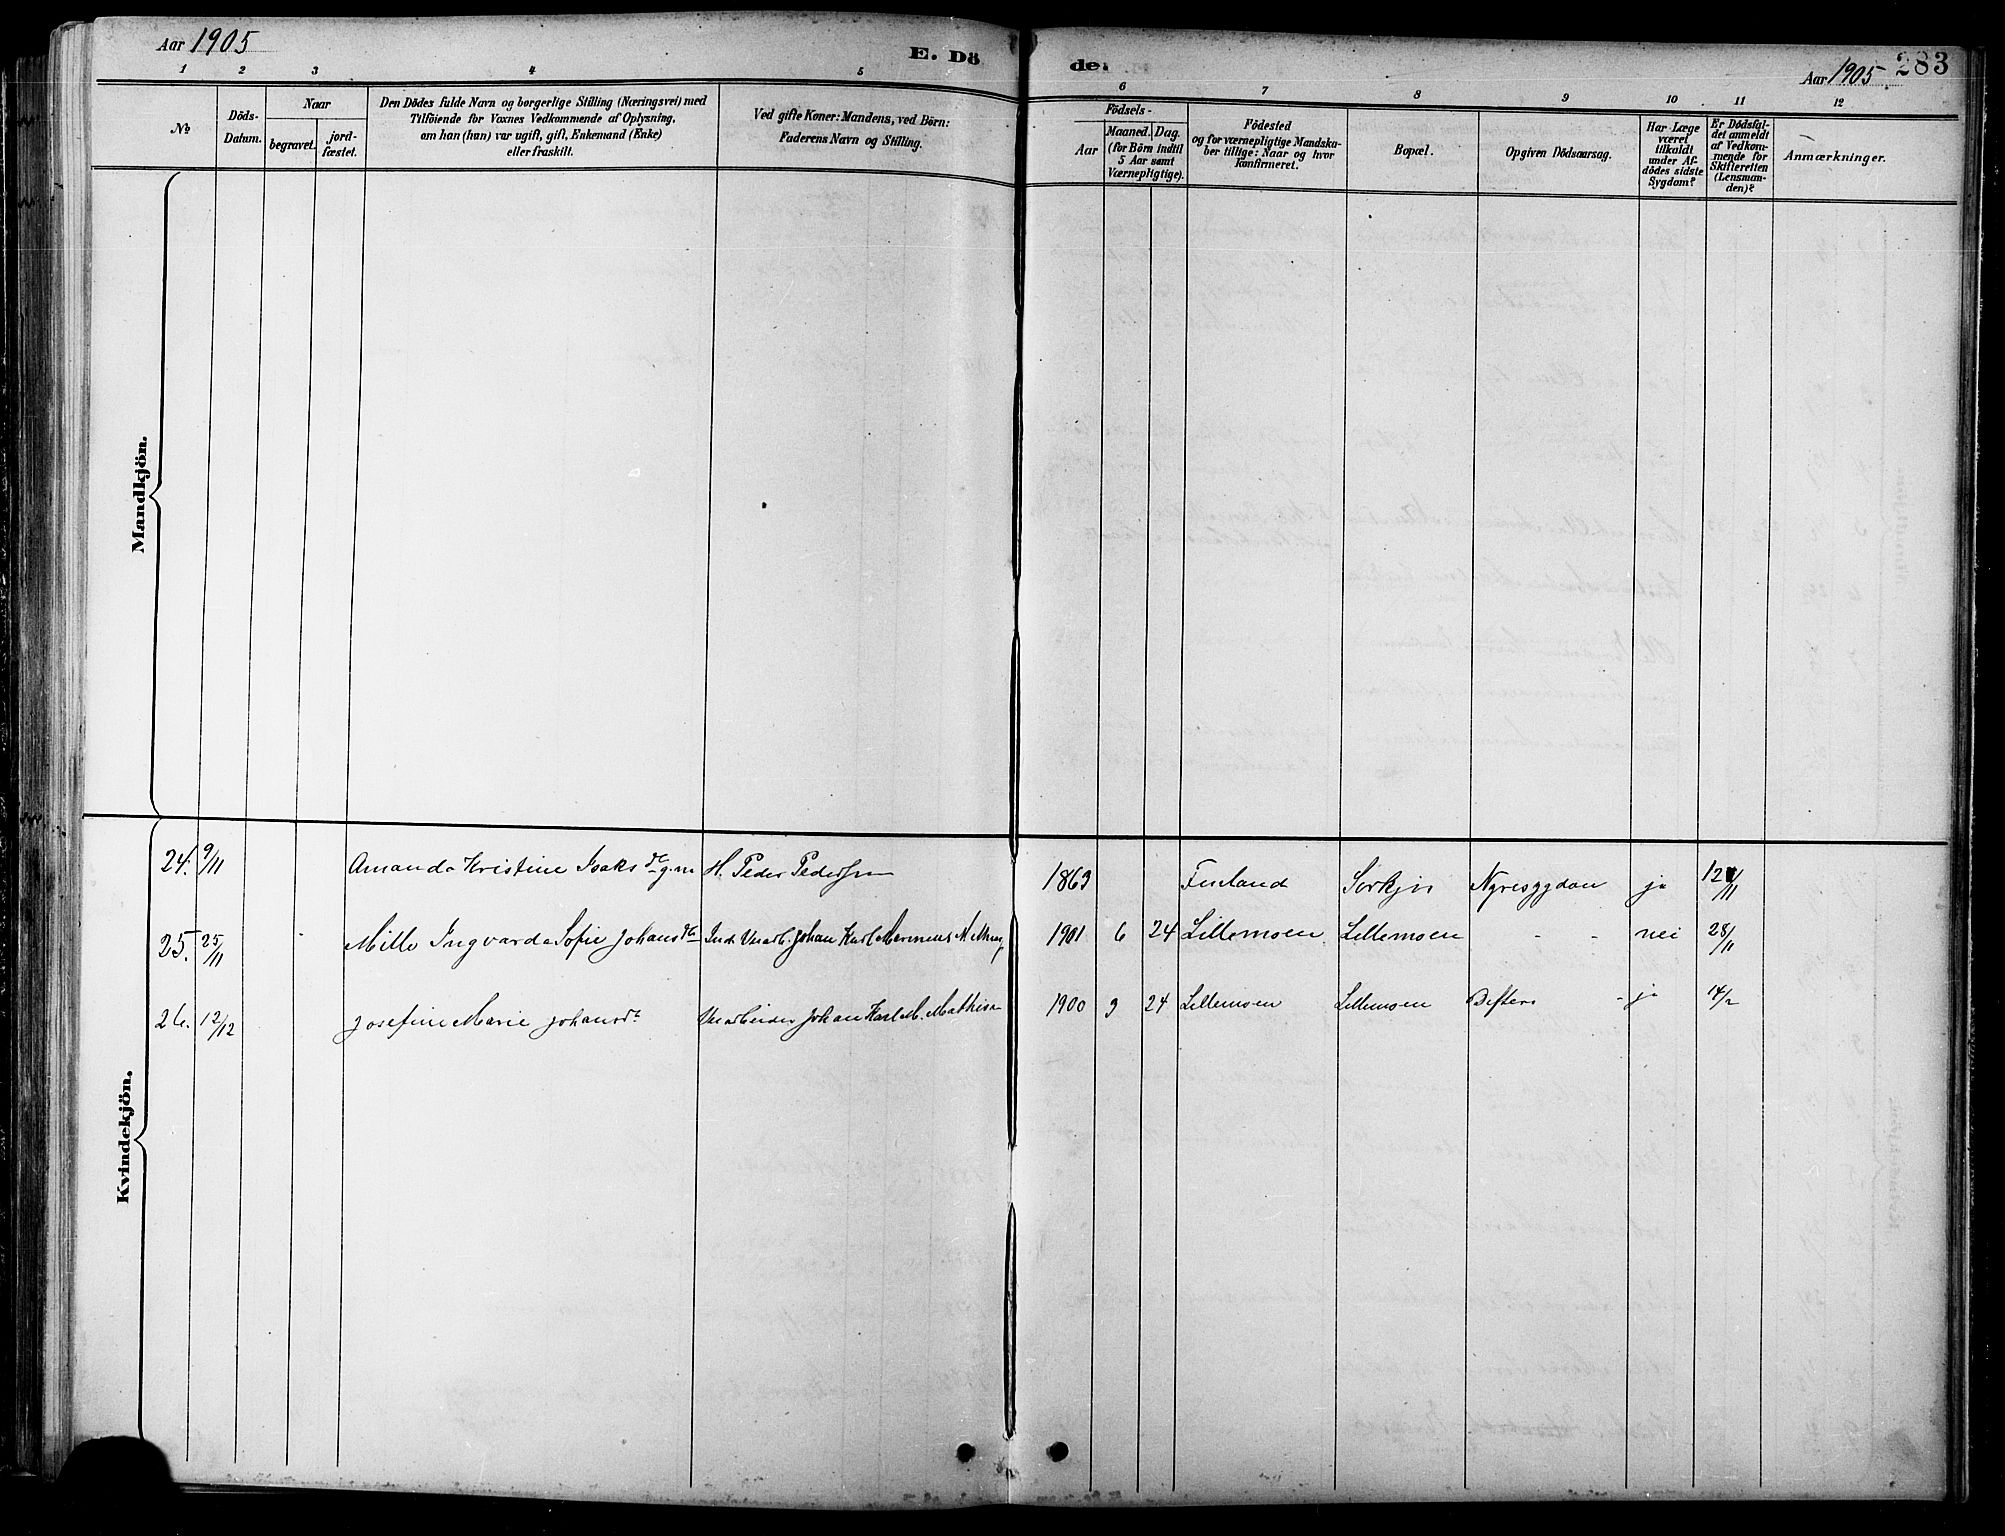 Aar 1905
E. Dö
de.
Aar 1905
283
1 2 3 4 5 6 7 8 9 10 11 12
№
Döds-
Datum.
Naar
begravet.
jord-
fæstet.
Den Dödes fulde Navn og borgerlige Stilling (Næringsvei) med
Tilföiende for Voxnes Vedkommende af Oplysning,
om han (hun) var ugift, gift, Enkemand (Enke)
eller fraskilt.
Ved gifte Koner: Mandens, ved Börn:
Faderens Navn og Stilling.
Födsels-
Aar
Maaned.
Dag.
(for Börn indtil
5 Aar samt
Værnepligtige).
Födested
og for værnepligtige Mandska-
ber tillige: Naar og hvor
konfirmeret.
Bopæl.
Opgiven Dödsaarsag.
Har Læge
været
tilkaldt
under Af-
dödes sidste
Sygdom?
Er Dödsfal-
det anmeldt
af Vedkom-
mende for
Skifteretten
(Lensman-
den)?
Anmærkninger.
Mandkjön.
Kvindekjön.
24. 9/11 Amanda Kristine Isaksdtr g.m. H. Peder Pedersen 1863 Finland Sørkjos Nyresygdom ja 12/11
25. 25/11 Mille Ingvarda Sofie Johansdtr Johan Karl 1901 6 24 Lillemoen Lillemoen - - nei 28/11
26. 12/12 Josefine Marie Johansdt Johan Karl M. Mathisen 1900 3 24 Lillemoen Lillemoen Difteri - ja 14/2